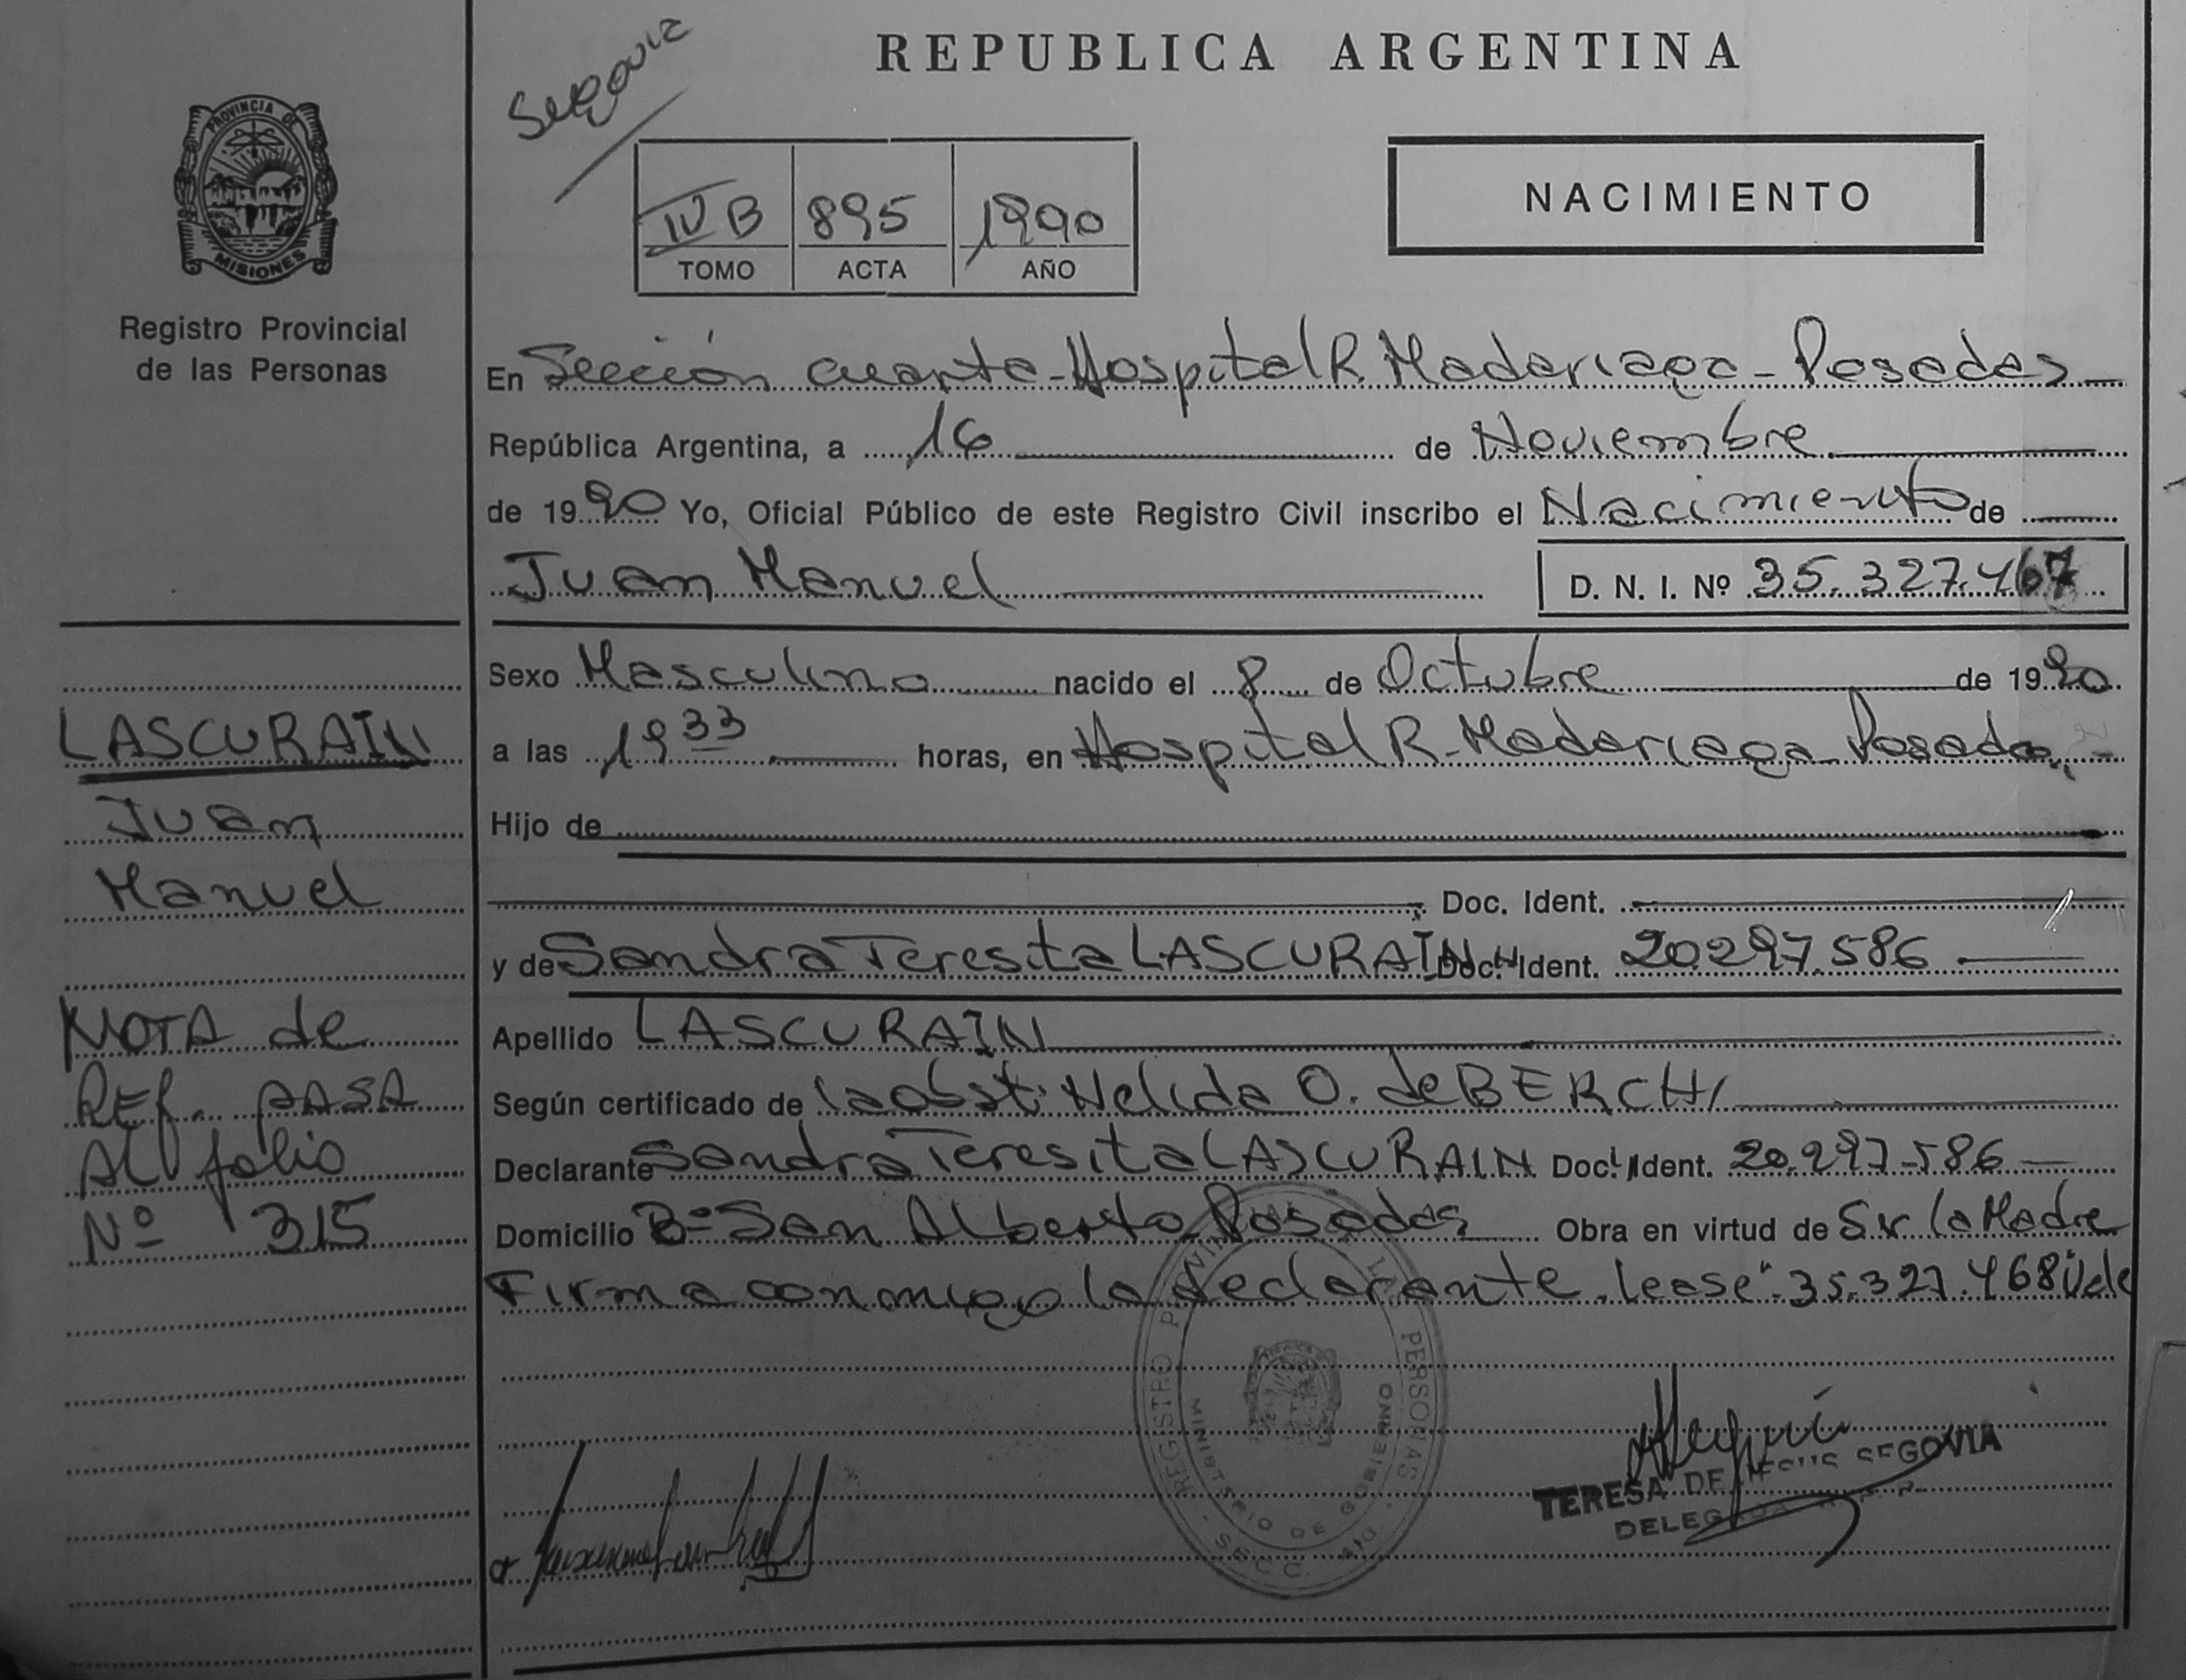 REPUBLICA ARGENTINA
Segovia
PROVINCIA DE
MISIONES
Registro Provincial
de las Personas
IV B 895 1990
TOMO ACTA AÑO
NACIMIENTO
En Sección cuarta - Hospital R. Madariaga - Posadas
República Argentina, a 16 de Noviembre
de 1990 Yo, Oficial Público de este Registro Civil inscribo el Nacimiento de
Juan Manuel D. N. I. Nº 35.327.467
Sexo Masculino nacido el 8 de Octubre de 1990
a las 19 33 horas, en Hospital R. Madariaga Posadas
Hijo de
Doc. Ident.
y de Sandra Teresita LASCURAIN Doc. Ident. 20.297.586
Apellido LASCURAIN
Según certificado de la obst. Nelida O. de BERCHI
Declarante Sandra Teresita LASCURAIN Doc. Ident. 20.297.586
Domicilio Bº San Alberto Posadas Obra en virtud de Ser la Madre
Firma conmigo la declarante. lease "35.327.468" Vale
LASCURAIN
Juan
Manuel
NOTA de
REF. PASA
AL folio
Nº 315
REGISTRO PROVINCIAL DE LAS PERSONAS
MINISTERIO DE GOBIERNO
SECC. 4ta
TERESA DE JESUS SEGOVIA
DELEGADA